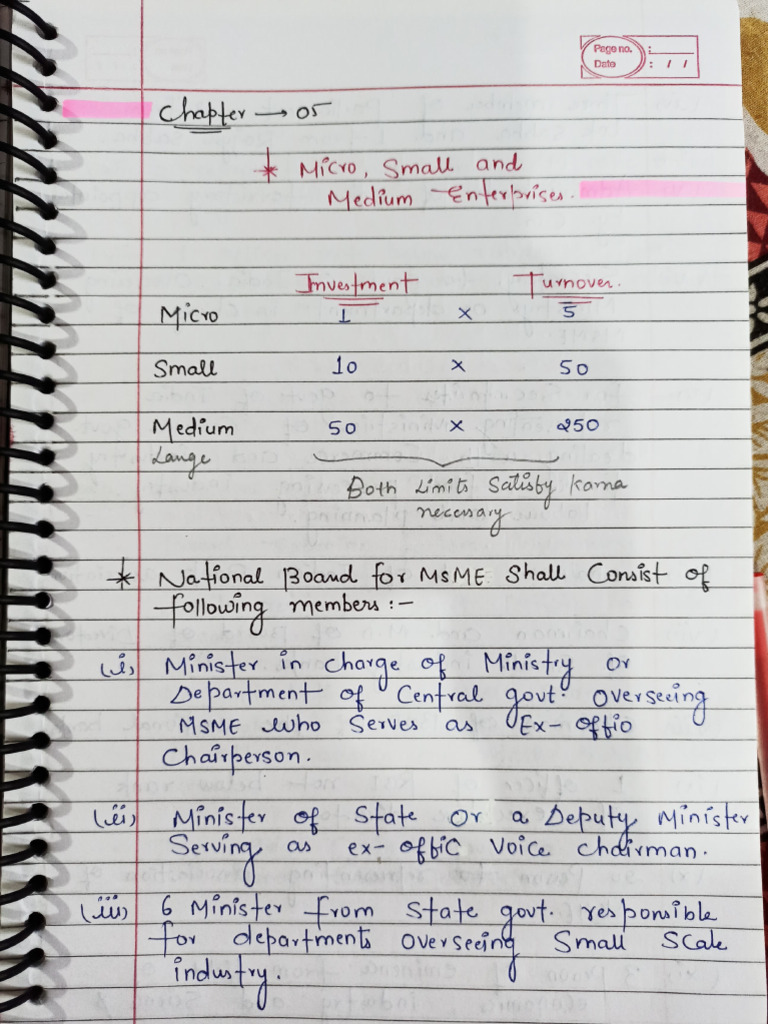 Page no. :
Date : / /
Chapter → 05
* Micro, Small and
Medium Enterprises.
Investment Turnover.
Micro 1 × 5
Small 10 × 50
Medium 50 × 250
Lange
Both Limits Satisfy Karna
necessary
* National Board for MSME Shall Consist of
following members :-
(i) Minister in charge of Ministry or
Department of Central govt. overseeing
MSME who Serves as Ex-offio
Chairperson.
(ii) Minister of State or a Deputy Minister
Serving as ex-offic Voice chairman.
(iii) 6 Minister from State govt. responsible
for departments overseeing Small Scale
industry.